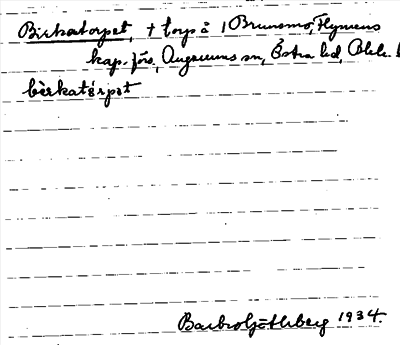 Birkatorpet, † torp å 1 Brunsmo, Flymens
kap. förs., Augerums sn, Östra hd, Blek. l
bèrkatårpət
Barbro Göthberg 1934.